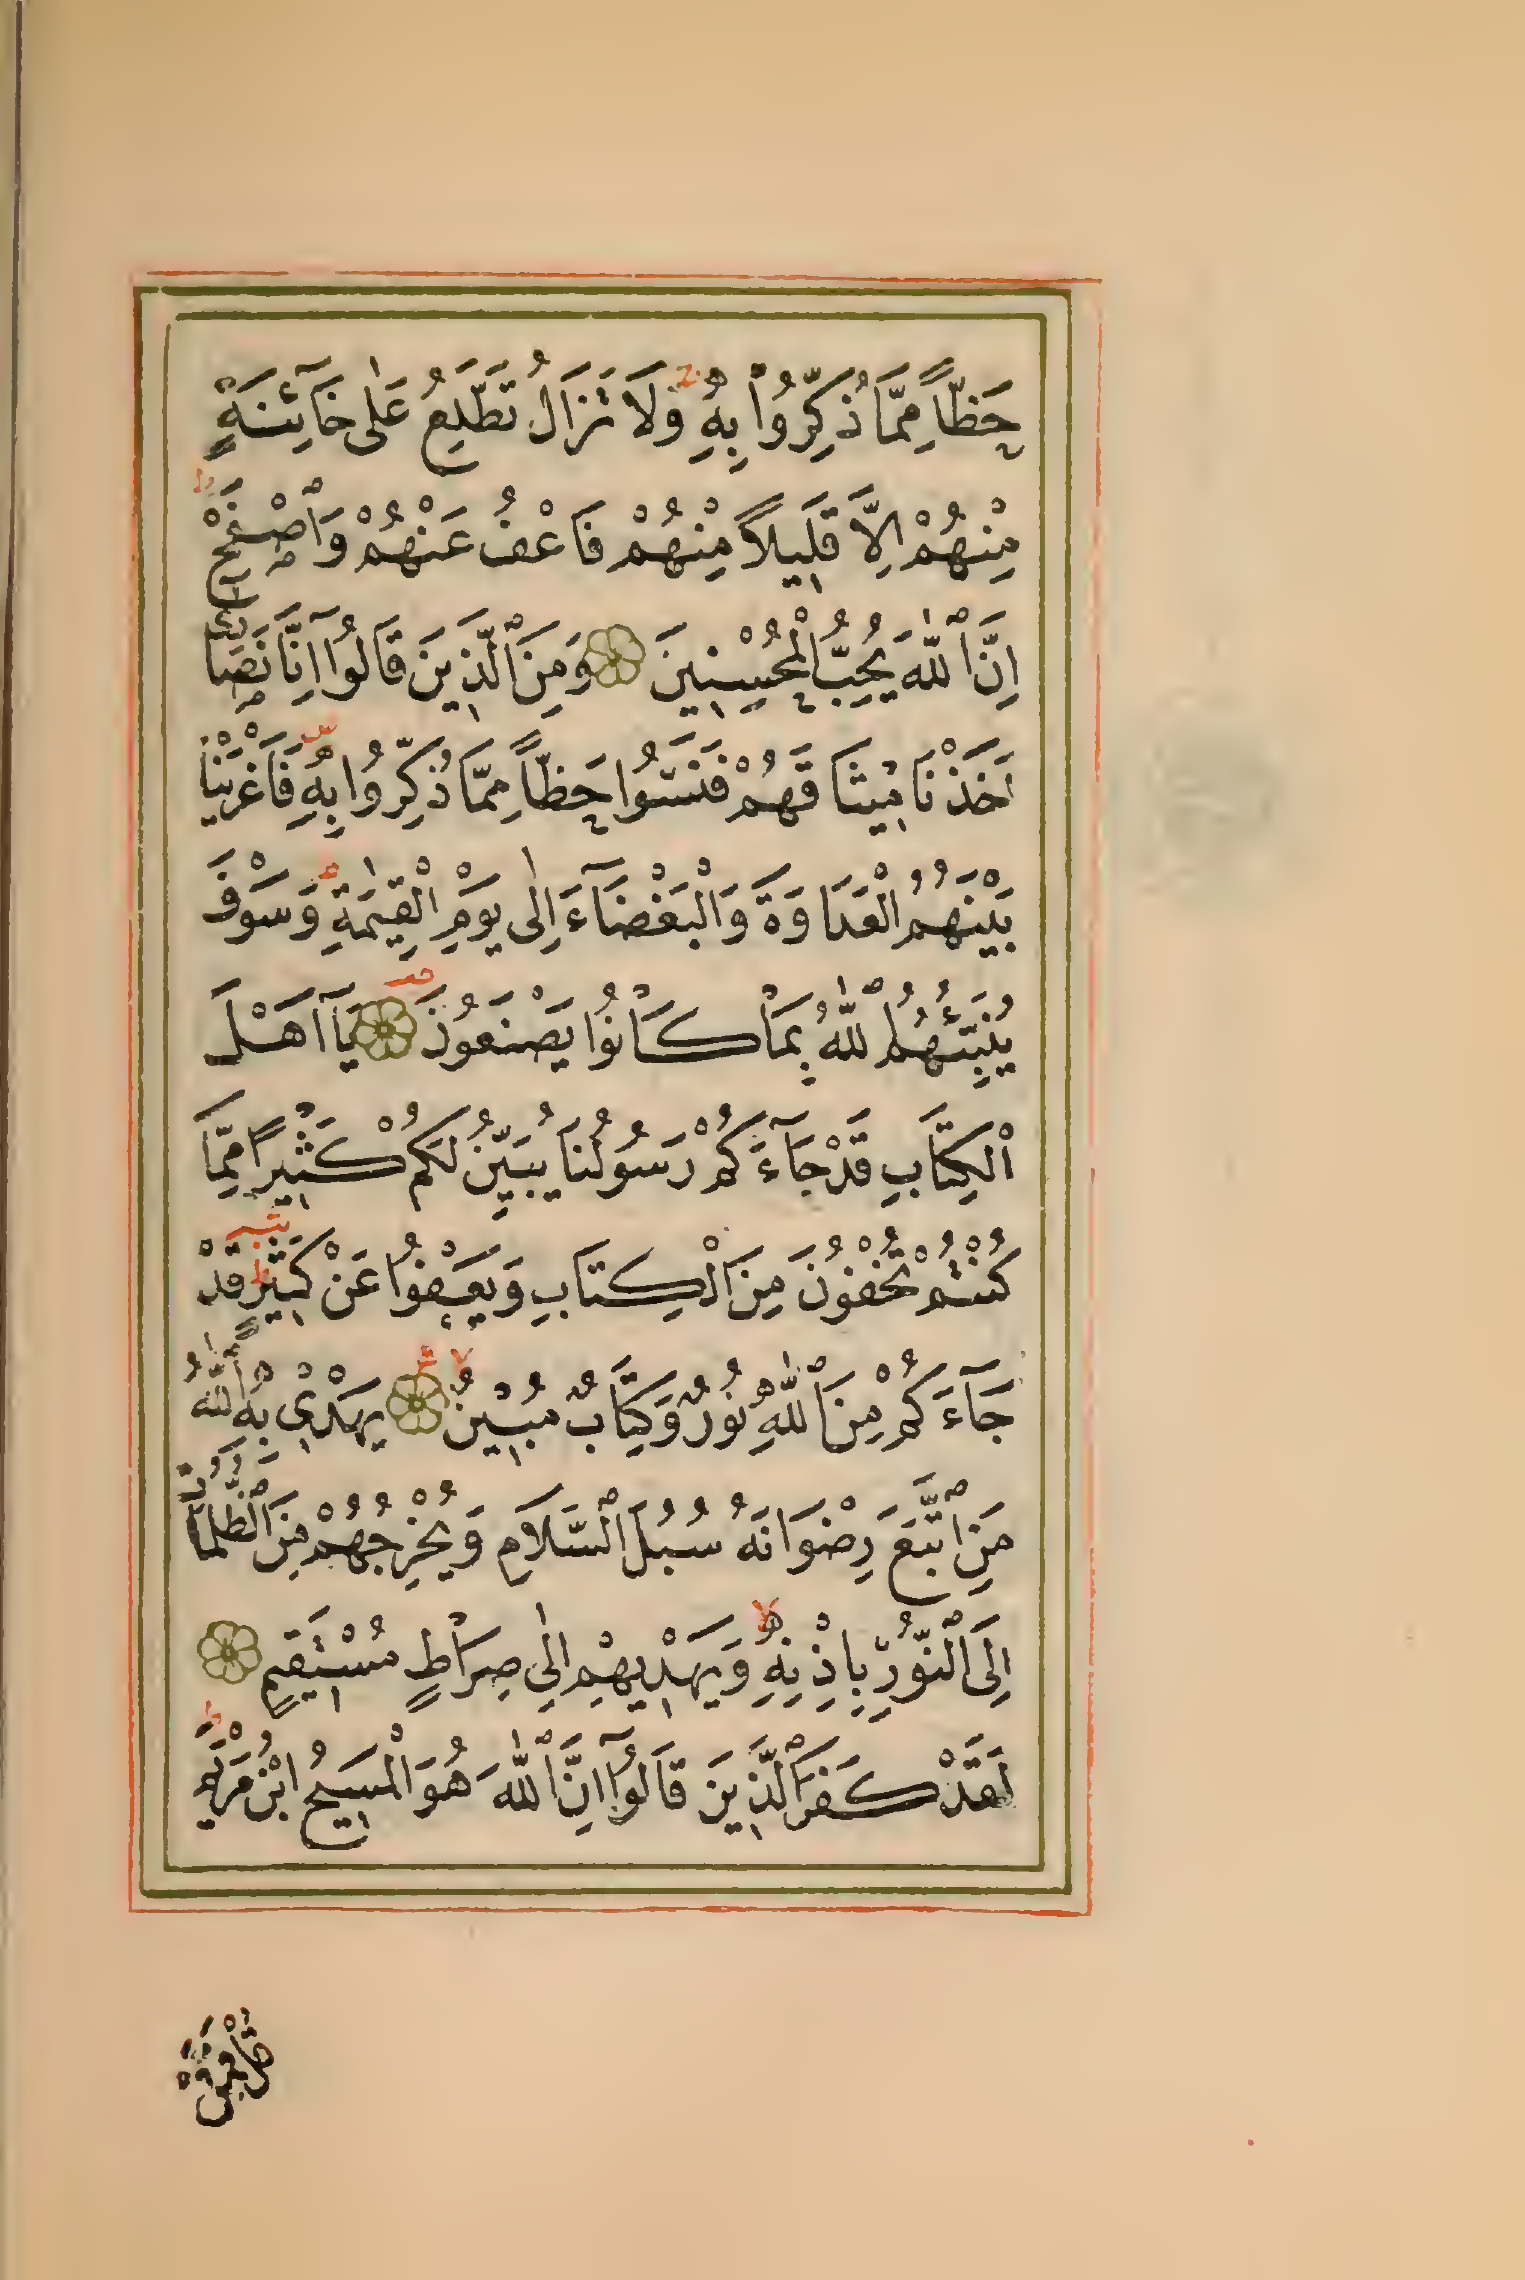 حَظّاً مِمَّا ذُكِّرُوا بِهِ وَلَا تَزَالُ تَطَّلِعُ عَلٰى خَآئِنَةٍ
مِنْهُمْ اِلَّا قَلِيلاً مِنْهُمْ فَاعْفُ عَنْهُمْ وَاصْفَحْ
اِنَّ اللّٰهَ يُحِبُّ الْمُحْسِنِينَ وَمِنَ الَّذِينَ قَالُوا اِنَّا نَصَارٰى
اَخَذْنَا مِيثَاقَهُمْ فَنَسُوا حَظّاً مِمَّا ذُكِّرُوا بِهِ فَاَغْرَيْنَا
بَيْنَهُمُ الْعَدَاوَةَ وَالْبَغْضَآءَ اِلٰى يَوْمِ الْقِيٰمَةِ وَسَوْفَ
يُنَبِّئُهُمُ اللّٰهُ بِمَا كَانُوا يَصْنَعُونَ يَآ اَهْلَ
الْكِتَابِ قَدْ جَآءَكُمْ رَسُولُنَا يُبَيِّنُ لَكُمْ كَثِيرًا مِمَّا
كُنْتُمْ تُخْفُونَ مِنَ الْكِتَابِ وَيَعْفُوا عَنْ كَثِيرٍ قَدْ
جَآءَكُمْ مِنَ اللّٰهِ نُورٌ وَكِتَابٌ مُبِينٌ يَهْدِي بِهِ اللّٰهُ
مَنِ اتَّبَعَ رِضْوَانَهُ سُبُلَ السَّلَامِ وَيُخْرِجُهُمْ مِنَ الظُّلُمَاتِ
اِلَى النُّورِ بِاِذْنِهِ وَيَهْدِيهِمْ اِلٰى صِرَاطٍ مُسْتَقِيمٍ
لَقَدْ كَفَرَ الَّذِينَ قَالُوآ اِنَّ اللّٰهَ هُوَ الْمَسِيحُ ابْنُ مَرْيَمَ
قُلْ فَمَنْ